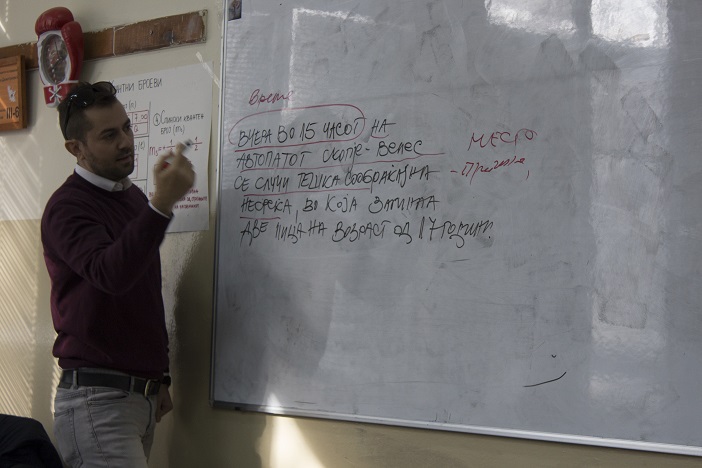 КВАНТНИ БРОЕВИ
④ СПИНСКИ КВАНТЕН
БРОЈ (ms)
време
ВЧЕРА ВО 15 ЧАСОТ НА
АВТОПАТОТ СКОПЈЕ - ВЕЛЕС
МЕСТО
СЕ СЛУЧИ ТЕШКА СООБРАЌАЈНА
НЕСРЕЌА, ВО КОЈА ЗАГИНАА
ДВЕ ЛИЦА НА ВОЗРАСТ ОД 17 ГОДИНИ.